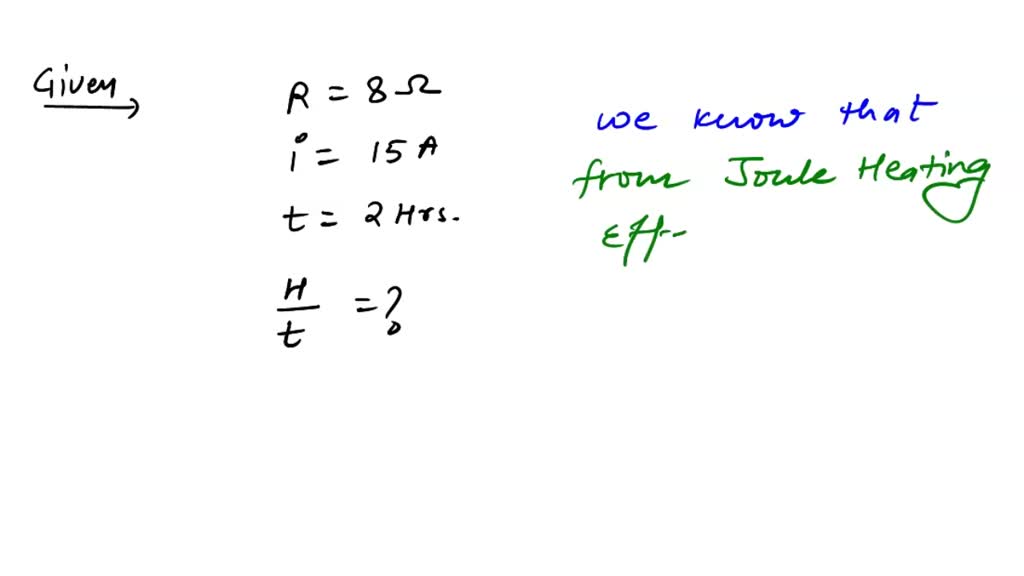 Given
R = 8 Ω
i = 15 A
t = 2 Hrs.
H/t = ?
we know that
from Joule Heating
Eff--